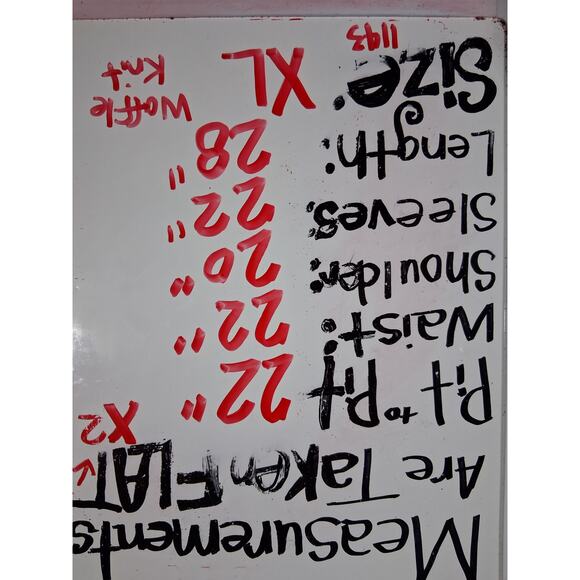 Measurements
Are Taken FLAT
X2
Pit to Pit 22"
Waist: 22"
Shoulder: 20"
Sleeves: 22"
Length: 28"
Size: XL Waffle Knit
1193